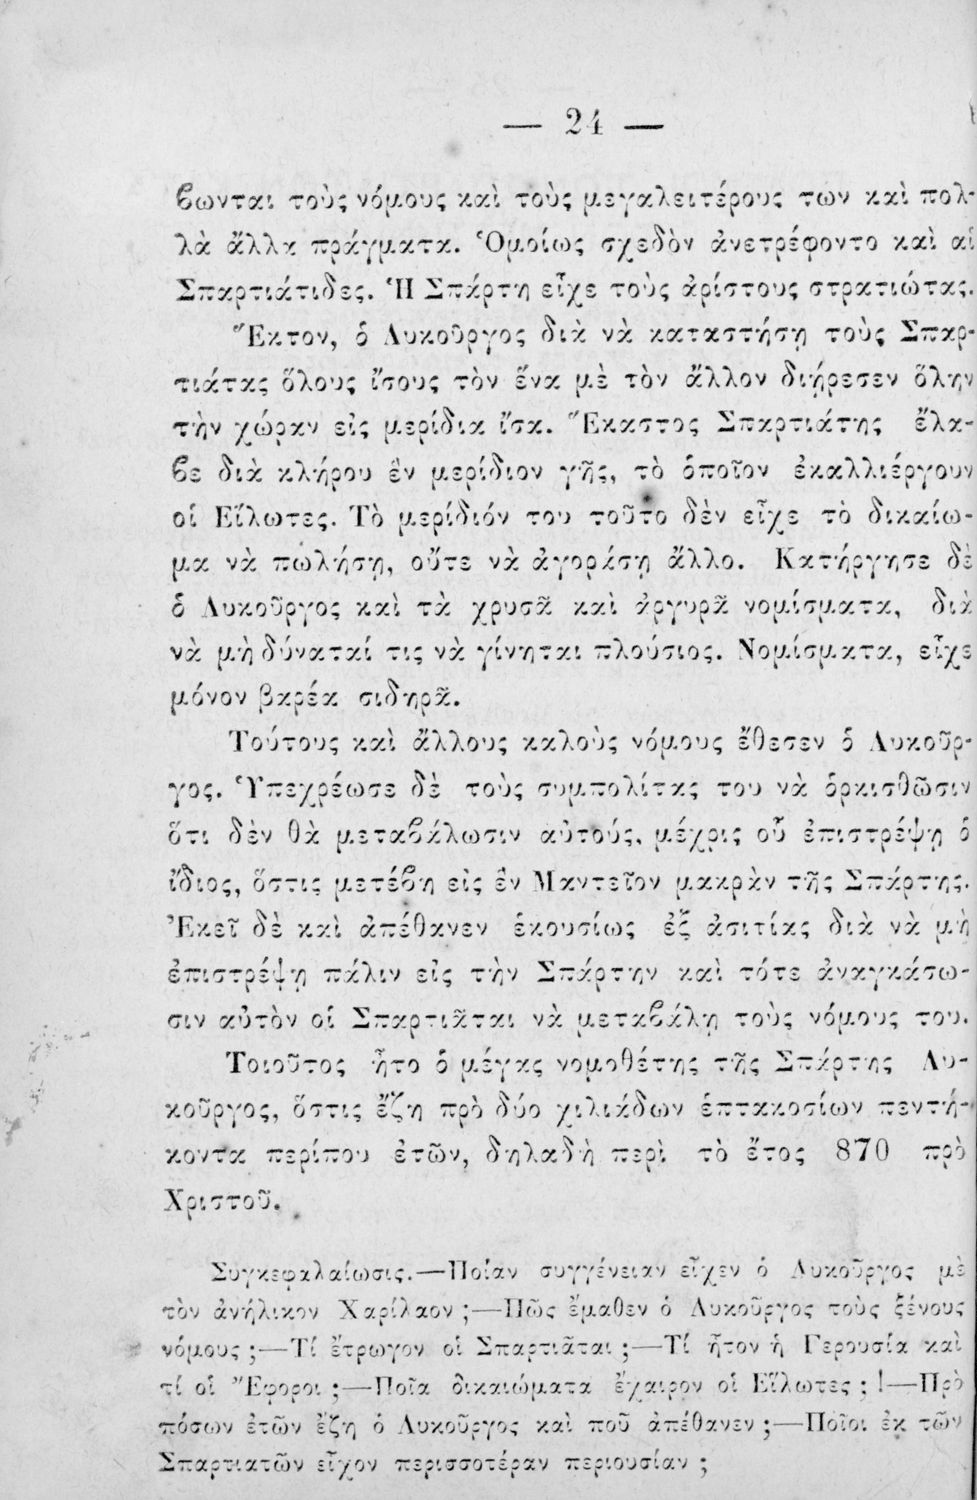 — 24 —
βωνται τοὺς νόμους καὶ τοὺς μεγαλειτέρους των καὶ πολ-
λὰ ἄλλα πράγματα. Ὁμοίως σχεδὸν ἀνετρέφοντο καὶ αἱ
Σπαρτιάτιδες. Ἡ Σπάρτη εἶχε τοὺς ἀρίστους στρατιώτας.
Ἕκτον, ὁ Λυκοῦργος διὰ νὰ καταστήσῃ τοὺς Σπαρ-
τιάτας ὅλους ἴσους τὸν ἕνα μὲ τὸν ἄλλον διῄρεσεν ὅλην
τὴν χώραν εἰς μερίδια ἴσα. Ἕκαστος Σπαρτιάτης ἔλα-
βε διὰ κλήρου ἓν μερίδιον γῆς, τὸ ὁποῖον ἐκαλλιέργουν
οἱ Εἵλωτες. Τὸ μερίδιόν του τοῦτο δὲν εἶχε τὸ δικαίω-
μα νὰ πωλήσῃ, οὔτε νὰ ἀγοράσῃ ἄλλο. Κατήργησε δὲ
ὁ Λυκοῦργος καὶ τὰ χρυσᾶ καὶ ἀργυρᾶ νομίσματα, διὰ
νὰ μὴ δύναταί τις νὰ γίνηται πλούσιος. Νομίσματα, εἶχε
μόνον βαρέα σιδηρᾶ.
Τούτους καὶ ἄλλους καλοὺς νόμους ἔθεσεν ὁ Λυκοῦρ-
γος. Ὑπεχρέωσε δὲ τοὺς συμπολίτας του νὰ ὁρκισθῶσιν
ὅτι δὲν θὰ μεταβάλωσιν αὐτούς, μέχρις οὗ ἐπιστρέψῃ ὁ
ἴδιος, ὅστις μετέβη εἰς ἓν Μαντεῖον μακρὰν τῆς Σπάρτης.
Ἐκεῖ δὲ καὶ ἀπέθανεν ἑκουσίως ἐξ ἀσιτίας διὰ νὰ μὴ
ἐπιστρέψῃ πάλιν εἰς τὴν Σπάρτην καὶ τότε ἀναγκάσω-
σιν αὐτὸν οἱ Σπαρτιᾶται νὰ μεταβάλῃ τοὺς νόμους του.
Τοιοῦτος ἦτο ὁ μέγας νομοθέτης τῆς Σπάρτης Λυ-
κοῦργος, ὅστις ἔζη πρὸ δύο χιλιάδων ἑπτακοσίων πεντή-
κοντα περίπου ἐτῶν, δηλαδὴ περὶ τὸ ἔτος 870 πρὸ
Χριστοῦ.
Συγκεφαλαίωσις.—Ποίαν συγγένειαν εἶχεν ὁ Λυκοῦργος μὲ
τὸν ἀνήλικον Χαρίλαον ;—Πῶς ἔμαθεν ὁ Λυκοῦργος τοὺς ξένους
νόμους ;—Τί ἔτρωγον οἱ Σπαρτιᾶται ;—Τί ἦτον ἡ Γερουσία καὶ
τί οἱ Ἔφοροι ;—Ποῖα δικαιώματα ἔχαιρον οἱ Εἵλωτες ; !—Πρὸ
πόσων ἐτῶν ἔζη ὁ Λυκοῦργος καὶ ποῦ ἀπέθανεν ;—Ποῖοι ἐκ τῶν
Σπαρτιατῶν εἶχον περισσοτέραν περιουσίαν ;